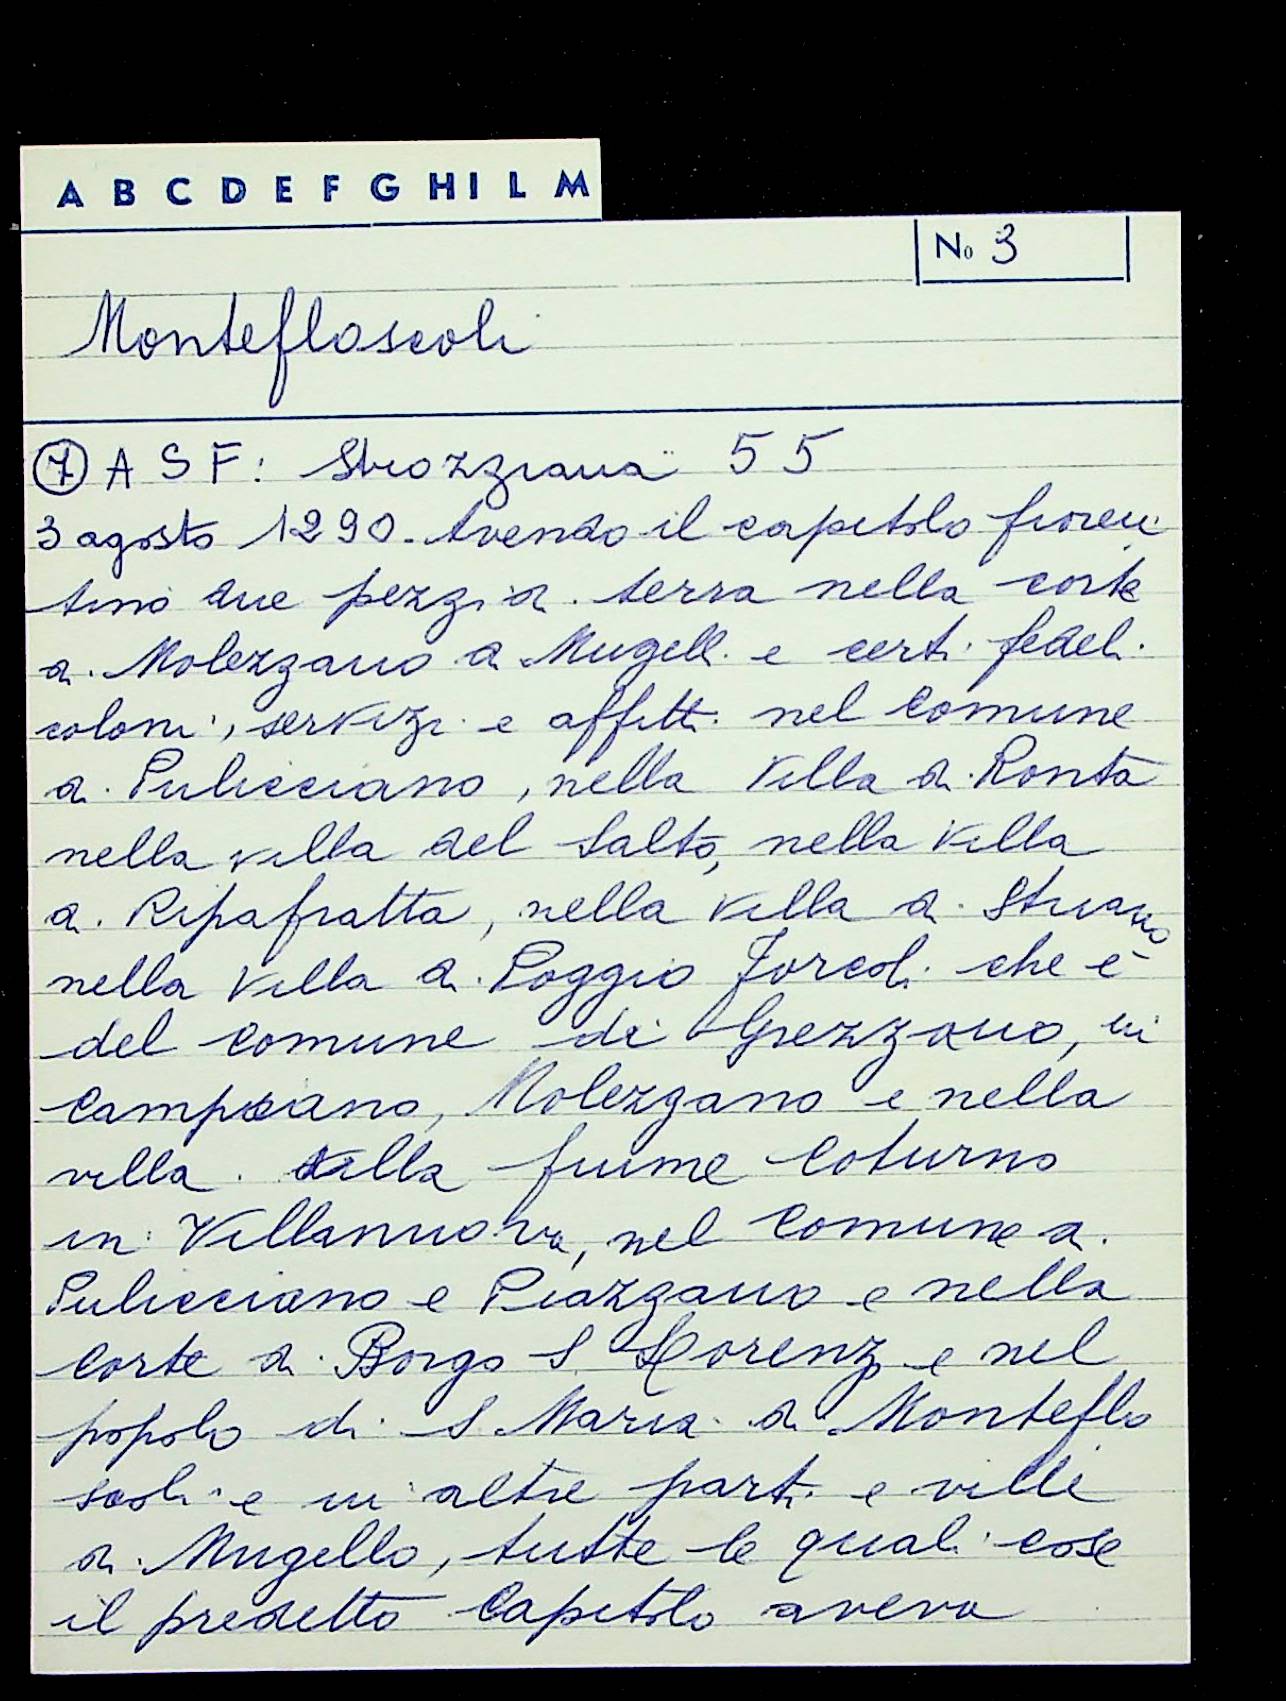 A B C D E F G H I L M
No 3
Montefloscoli
7 A S F: Strozziana 55
3 agosto 1290. Avendo il capitolo fioren
tino due pezzi di terra nella corte
di Molezzano di Mugell. e certi fedeli
coloni, servizi e affitti nel comune
di Pulicciano, nella villa di Ronta
nella villa del Salto, nella villa
di Ripafratta, nella villa di Struano
nella villa di Poggio Forcoli che è
del comune di Grezzano, in
Campiano, Molezzano e nella
villa. villa fiume Coturno
in Villanuova, nel comune di
Pulicciano e Piazzano e nella
corte di Borgo S Lorenzo e nel
popolo di S Maria di Monteflo
scoli e in altre parti e ville
di Mugello, tutte le quali cose
il predetto Capitolo aveva